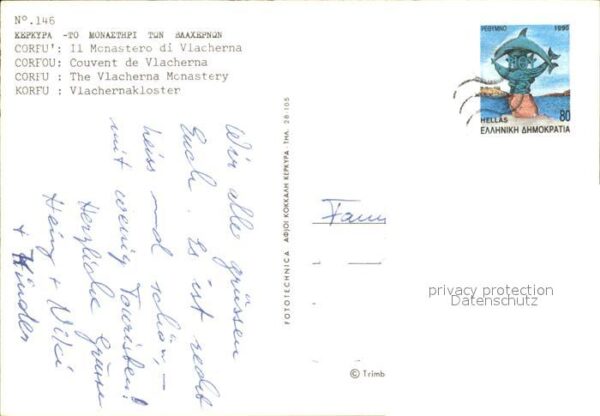 Nº.146
ΚΕΡΚΥΡΑ -ΤΟ ΜΟΝΑΣΤΗΡΙ ΤΩΝ ΒΛΑΧΕΡΝΩΝ
CORFU': Il Monastero di Vlacherna
CORFOU: Couvent de Vlacherna
CORFU : The Vlacherna Monastery
KORFU : Vlachernakloster
Wir alle grüssen
Euch. Es ist recht
heiss und schön, –
mit wenig Touristen!
Herzliche Grüsse
Heinz + Niki
+ Kinder
FOTOTECHNICA ΑΦ)ΟΙ ΚΟΚΚΑΛΗ ΚΕΡΚΥΡΑ · ΤΗΛ. 28·105
ΡΕΘΥΜΝΟ 1995
HELLAS 80
ΕΛΛΗΝΙΚΗ ΔΗΜΟΚΡΑΤΙΑ
Fam
privacy protection
Datenschutz
© Trimb